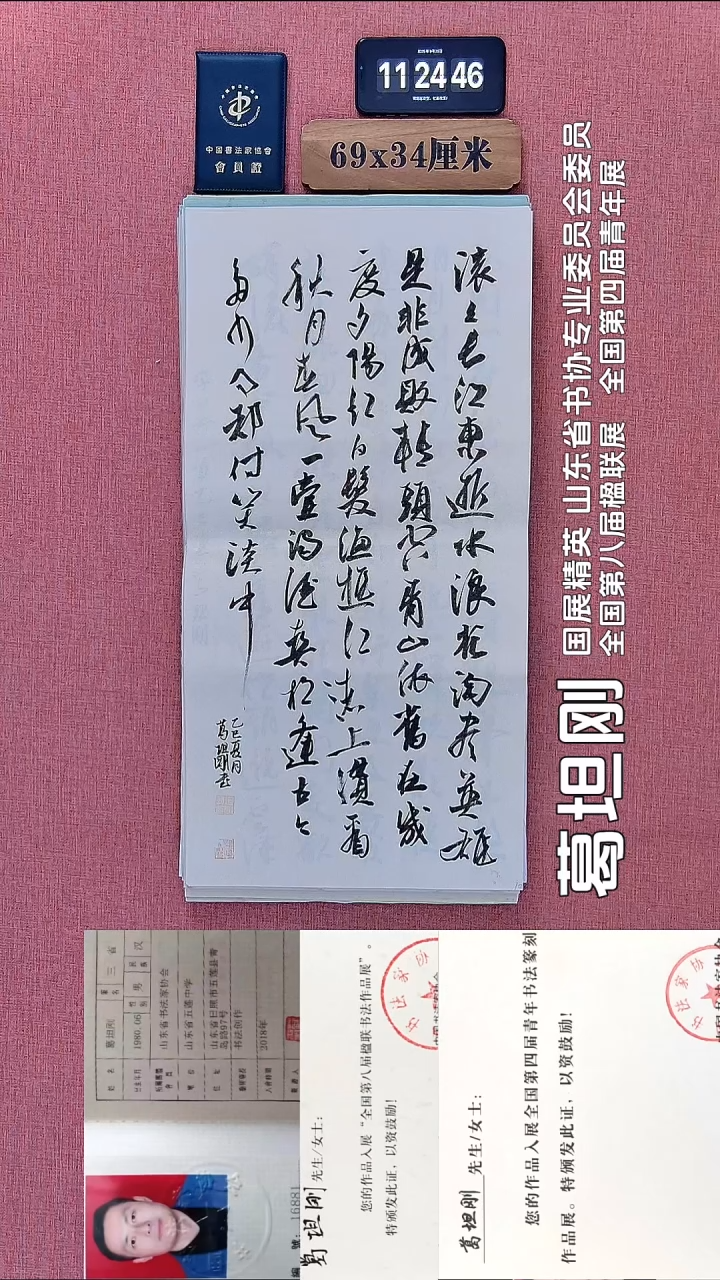 11 24 46
中国書法家協會
會員證
69x34厘米
滚滚长江東逝水浪花淘尽英雄
是非成败轉頭空青山依舊在几
度夕陽红白髮渔樵江渚上慣看
秋月春風一壶浊酒喜相逢古今
多少事都付笑谈中
乙巳夏月
葛坦刚书
国展精英 山东省书协专业委员会委员
全国第八届楹联展 全国第四届青年展
葛坦刚
姓名 葛坦刚
1980.06 性别 男 民族 汉
山东省书法家协会
山东省五莲中学
山东省日照市五莲县青
岛路97号
书法创作
2018年
編 號: 16881
葛坦刚 先生/女士:
您的作品入展“全国第八届楹联书法作品展”。
特颁发此证,以资鼓励!
葛坦刚 先生/女士:
您的作品入展全国第四届青年书法篆刻
作品展。特颁发此证,以资鼓励!